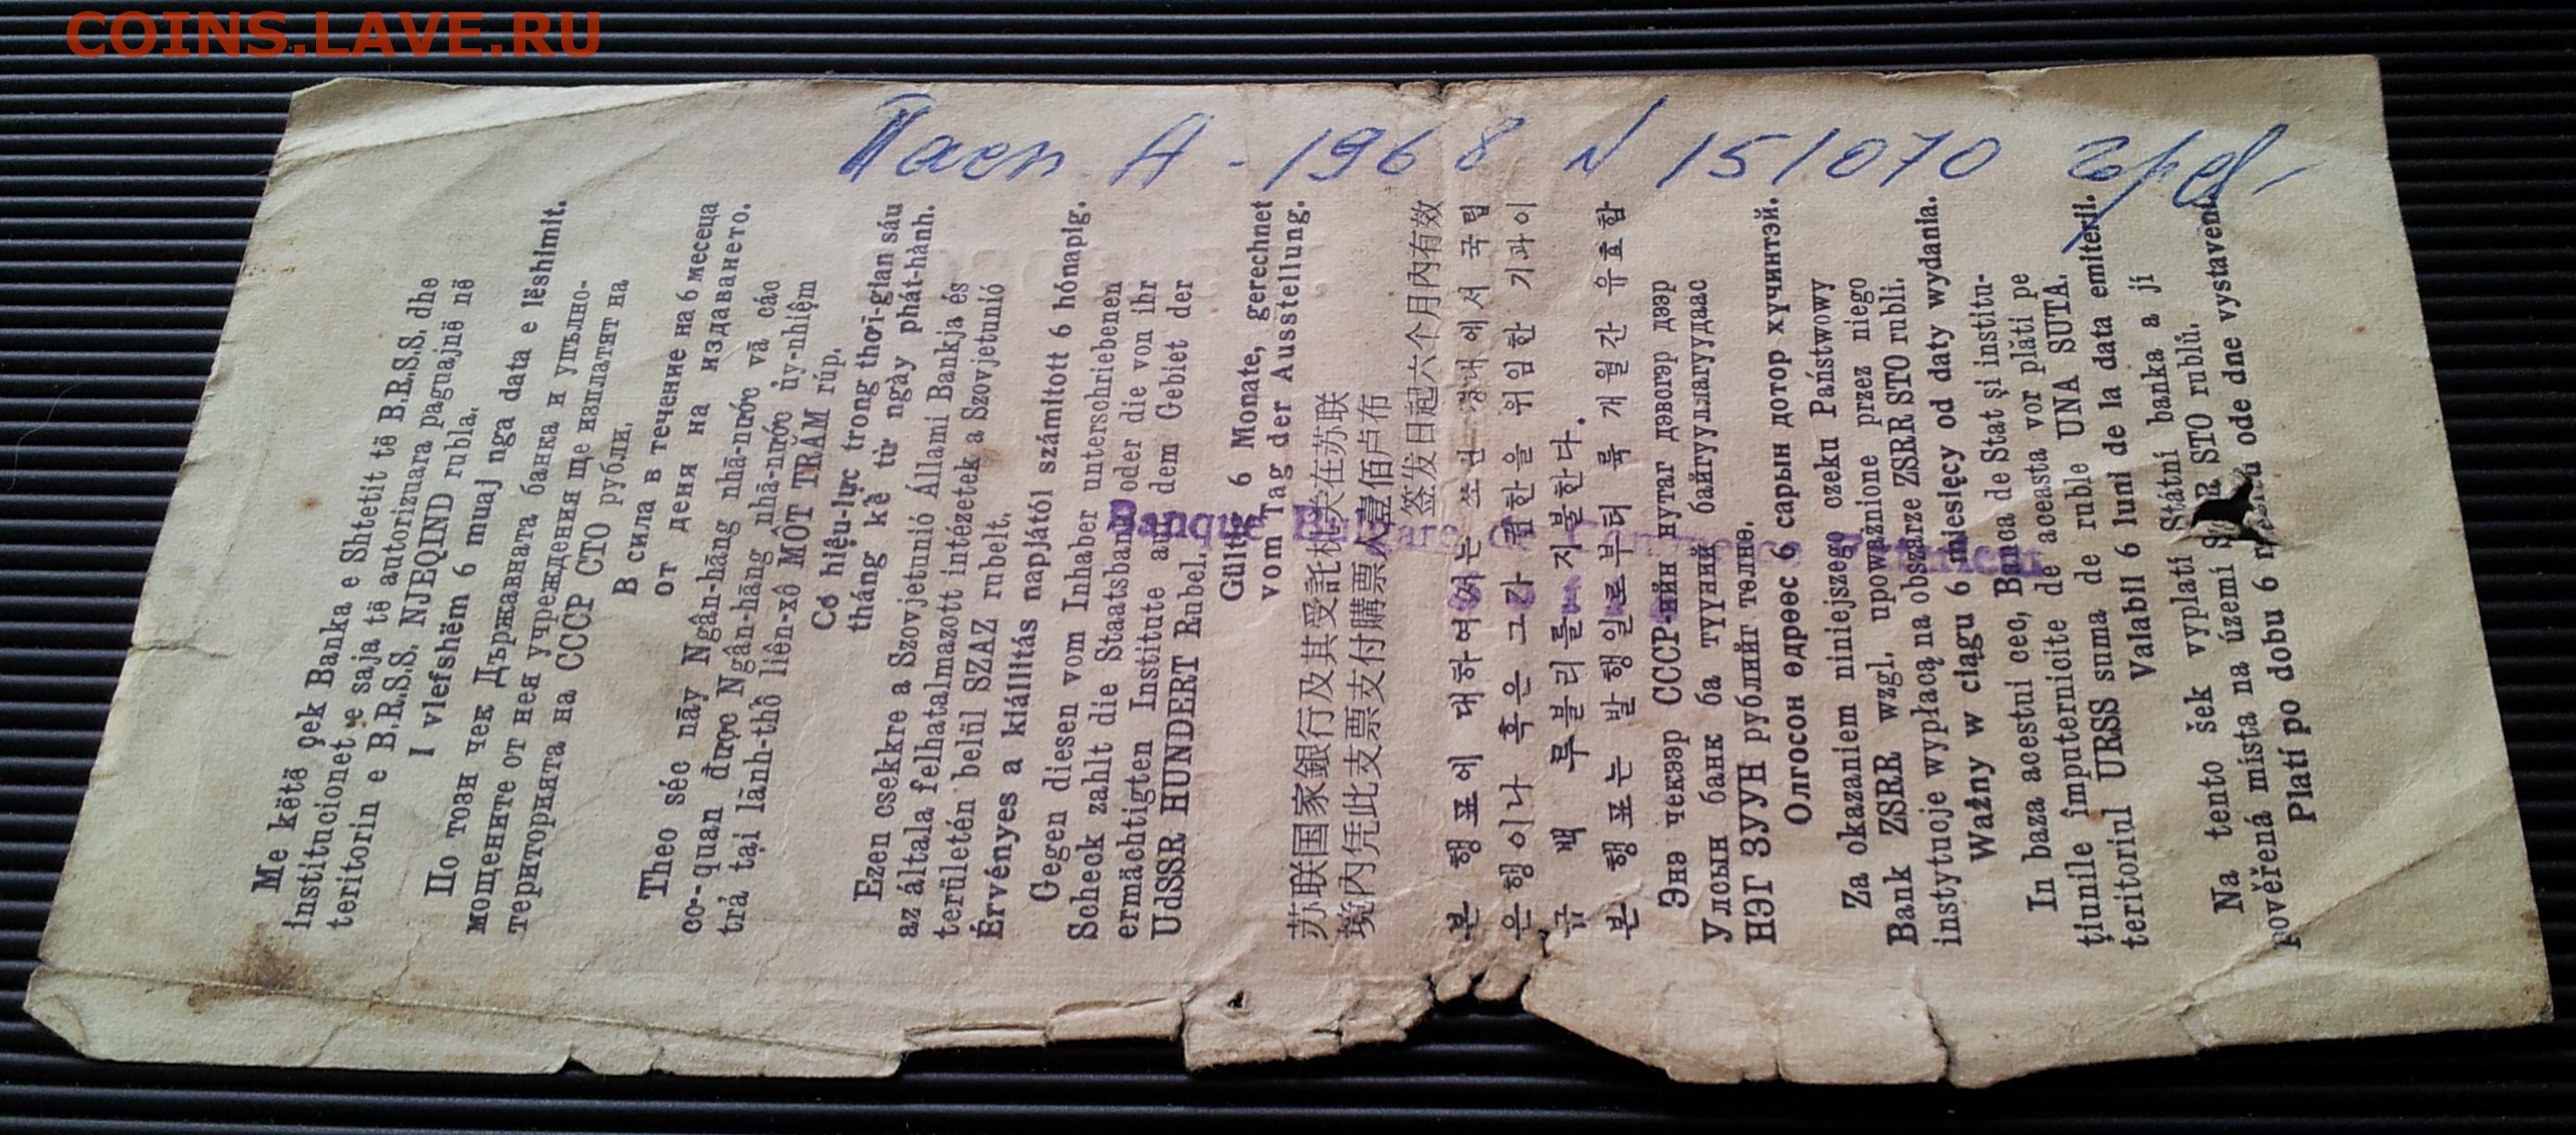 COINS.LAVE.RU
A - 1968 N 151070
Me këtë çek Banka e Shtetit të B.R.S.S. dhe
institucionet e saja të autorizuara paguajnë në
territorin e B.R.S.S. NJEQIND rubla.
I vlefshëm 6 muaj nga data e lëshimit.
По този чек Държавната банка и упълно-
мощените от нея учреждения ще изплатят на
територията на СССР СТО рубли.
В сила в течение на 6 месеца
от деня на издаването.
Theo séc nãy Ngân-hãng nhã-nước vã các
cơ-quan được Ngân-hãng nhã-nước ủy-nhiệm
trả tại lãnh-thổ liên-xô MỘT TRĂM rúp.
Có hiệu-lực trong thơi-gian sáu
tháng kể từ ngày phát-hành.
Ezen csekkre a Szovjetunió Állami Bankja és
az általa felhatalmazott intézetek a Szovjetunió
területén belül SZAZ rubelt.
Érvényes a kiállitás napjától számitott 6 hónapig.
Gegen diesen vom Inhaber unterschriebenen
Scheck zahlt die Staatsbank oder die von ihr
ermächtigten Institute auf dem Gebiet der
UdSSR HUNDERT Rubel.
Gültig 6 Monate, gerechnet
vom Tag der Ausstellung.
苏联国家銀行及其受託机关在苏联
境內凭此支票支付購票人壹佰卢布
签发日起六个月內有效
본 행표에 대하여 쏘련 경내에서 국립
은행이나 혹은 그가 위임한 기과이
금 백 루블리를 지불한다.
본 행표는 발행일로부터 륙 개월간 유효함
Энэ чекээр СССР-ийн нутаг дэвсгэр дээр
Улсын банк ба түүний байгууллагуудаас
НЭГ ЗУУН рублийг төлнө.
Олгосон өдрөөс 6 сарын дотор хүчинтэй.
Za okazaniem niniejszego czeku Państwowy
Bank ZSRR wzgl. upoważnione przez niego
instytucje wypłacą na obszarze ZSRR STO rubli.
Ważny w ciągu 6 miesięcy od daty wydania.
In baza acestui cec, Banca de Stat şi institu-
ţiunile împuternicite de aceasta vor plăti pe
teritoriul URSS suma de ruble UNA SUTA.
Valabil 6 luni de la data emiterii.
Na tento šek vyplatí Státní banka a jí
pověřená místa na území STO rublů.
Platí po dobu 6 ode dne vystavení.
Banque Bulgare